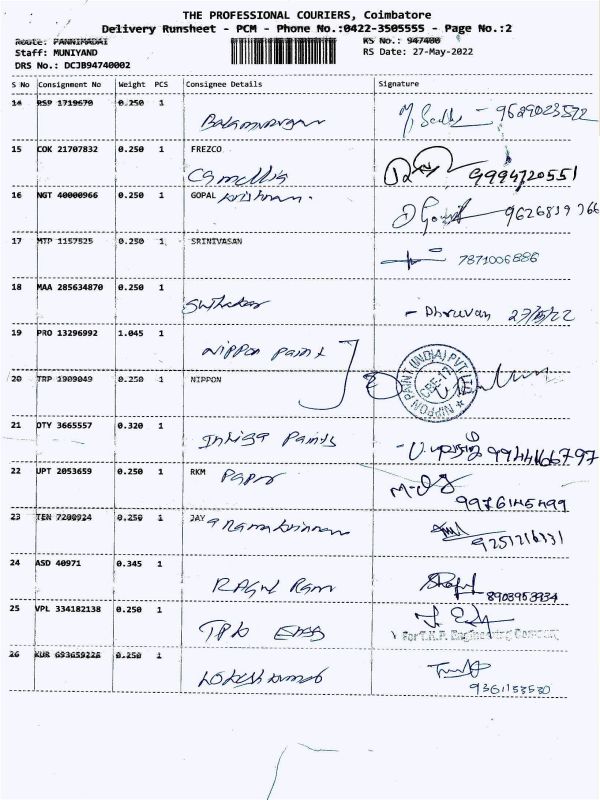 THE PROFESSIONAL COURIERS, Coimbatore
Delivery Runsheet - PCM - Phone No.:0422-3505555 - Page No.:2
Route: PANNIMADAI
RS No.: 947400
Staff: MUNIYAND
RS Date: 27-May-2022
DRS No.: DCJB94740002
S No Consignment No Weight PCS Consignee Details Signature
14 RSP 1719670 0.250 1
Balamurugan 9629023522
15 COK 21707832 0.250 1 FREZCO
Camellia 9994720551
16 NGT 40000966 0.250 1 GOPAL krishnan.
9626819766
17 MTP 1157525 0.250 1 SRINIVASAN
7871006886
18 MAA 285634870 0.250 1
Sudhakar - Dhruvan 27/5/22
19 PRO 13296992 1.045 1
Nippon paint
20 TRP 1909049 0.250 1 NIPPON
NIPPON PAINT (INDIA) PVT. LTD
CBE-17
21 OTY 3665557 0.320 1
Paints 9944166797
22 UPT 2053659 0.250 1 RKM Paper
9976145499
23 TEN 7200924 0.250 1 JAY a Ramakrishnan
9251216331
24 ASD 40971 0.345 1
Ragul Ram 8903953934
25 VPL 334182138 0.250 1
For T.K.P. Engineering Company
26 KUR 693659226 0.250 1
Lokesh kumar
9361153530